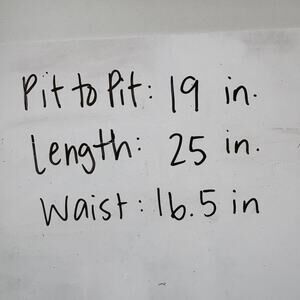 Pit to Pit: 19 in.
Length: 25 in.
Waist: 16.5 in